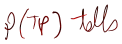 P(TP) tells